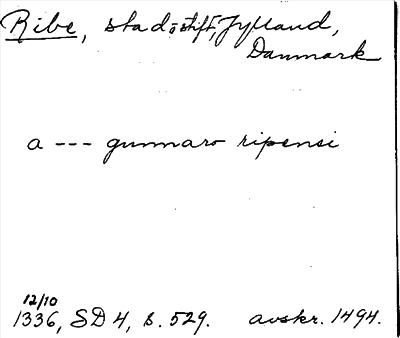 Ribe, stad o stift, Jylland,
Danmark
a --- gunnaro ripensi
12/10
1336, SD 4, s. 529. avskr. 1494.